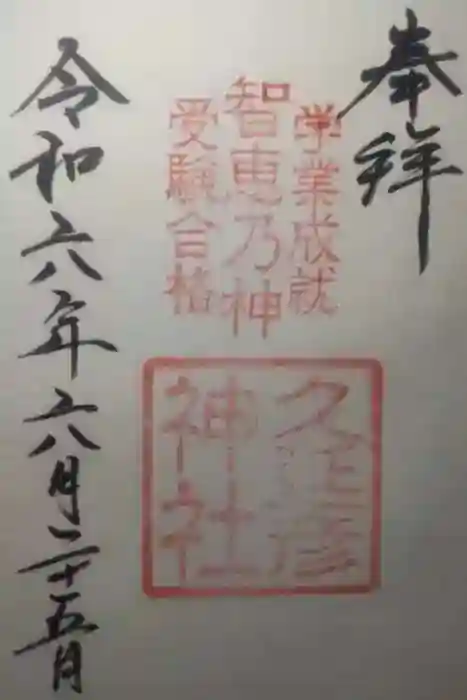 奉拝
学業成就
智恵乃神
受験合格
久延彦
神社
令和六年六月二十五日